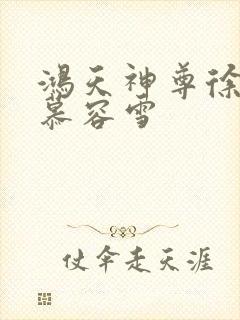 鸿天神尊徐
慕容雪
仗伞走天涯